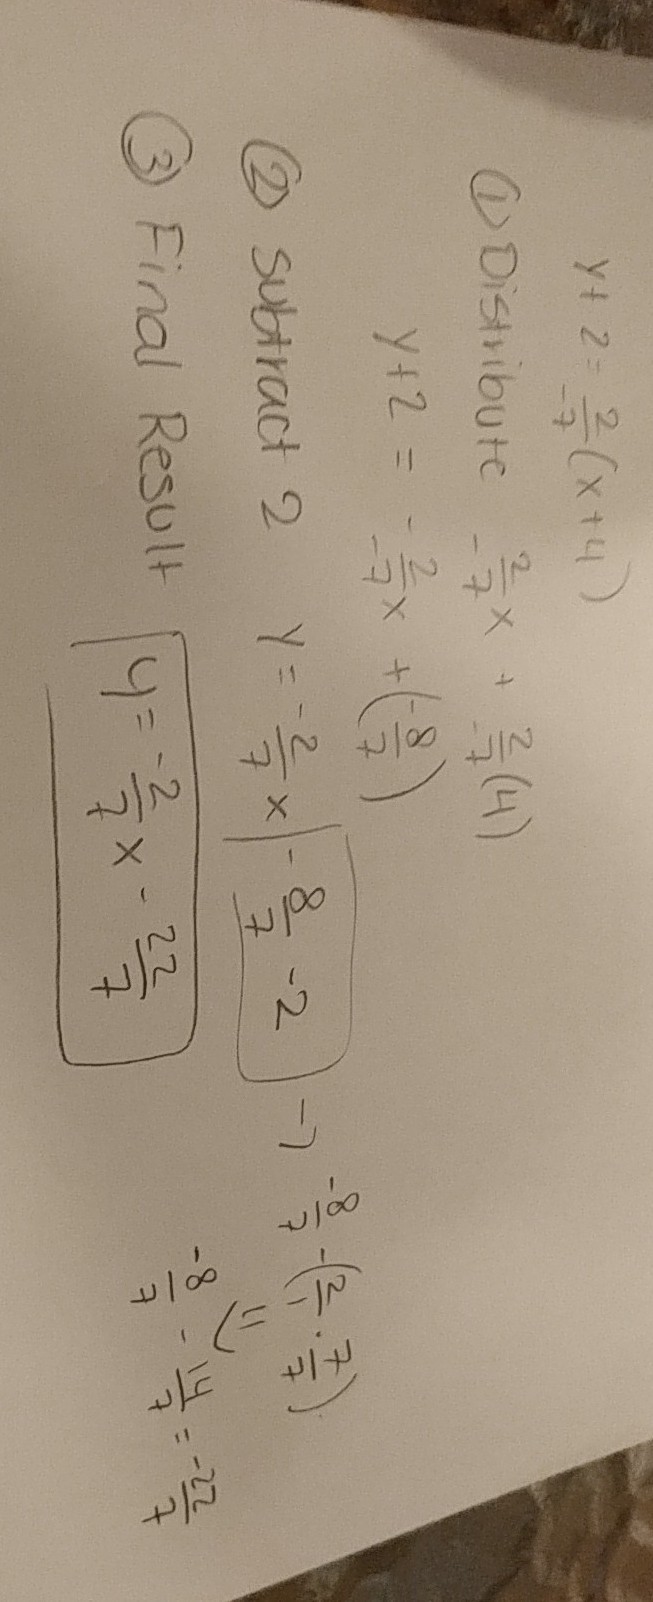 y + 2 = 2/-7 (x + 4)
① Distribute 2/-7 x + 2/-7 (4)
y + 2 = - 2/-7 x + (-8/7)
② Subtract 2 y = -2/7 x - 8/7 - 2 → -8/7 - (2/1 · 7/7)
=
-8/7 - 14/7 = -22/7
③ Final Result y = -2/7 x - 22/7